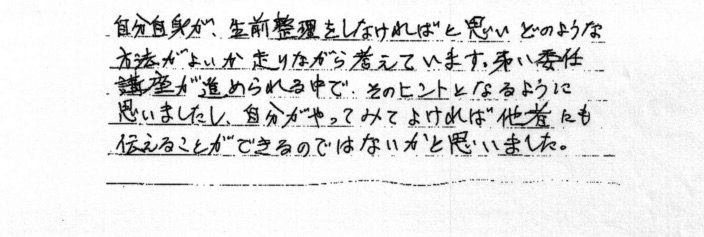 自分自身が、生前整理をしなければと思い どのような
方法がよいか 走りながら考えています。 委任
講座が進められる中で、そのヒントとなるように
思いましたし、自分がやってみてよければ他者にも
伝えることができるのではないかと思いました。